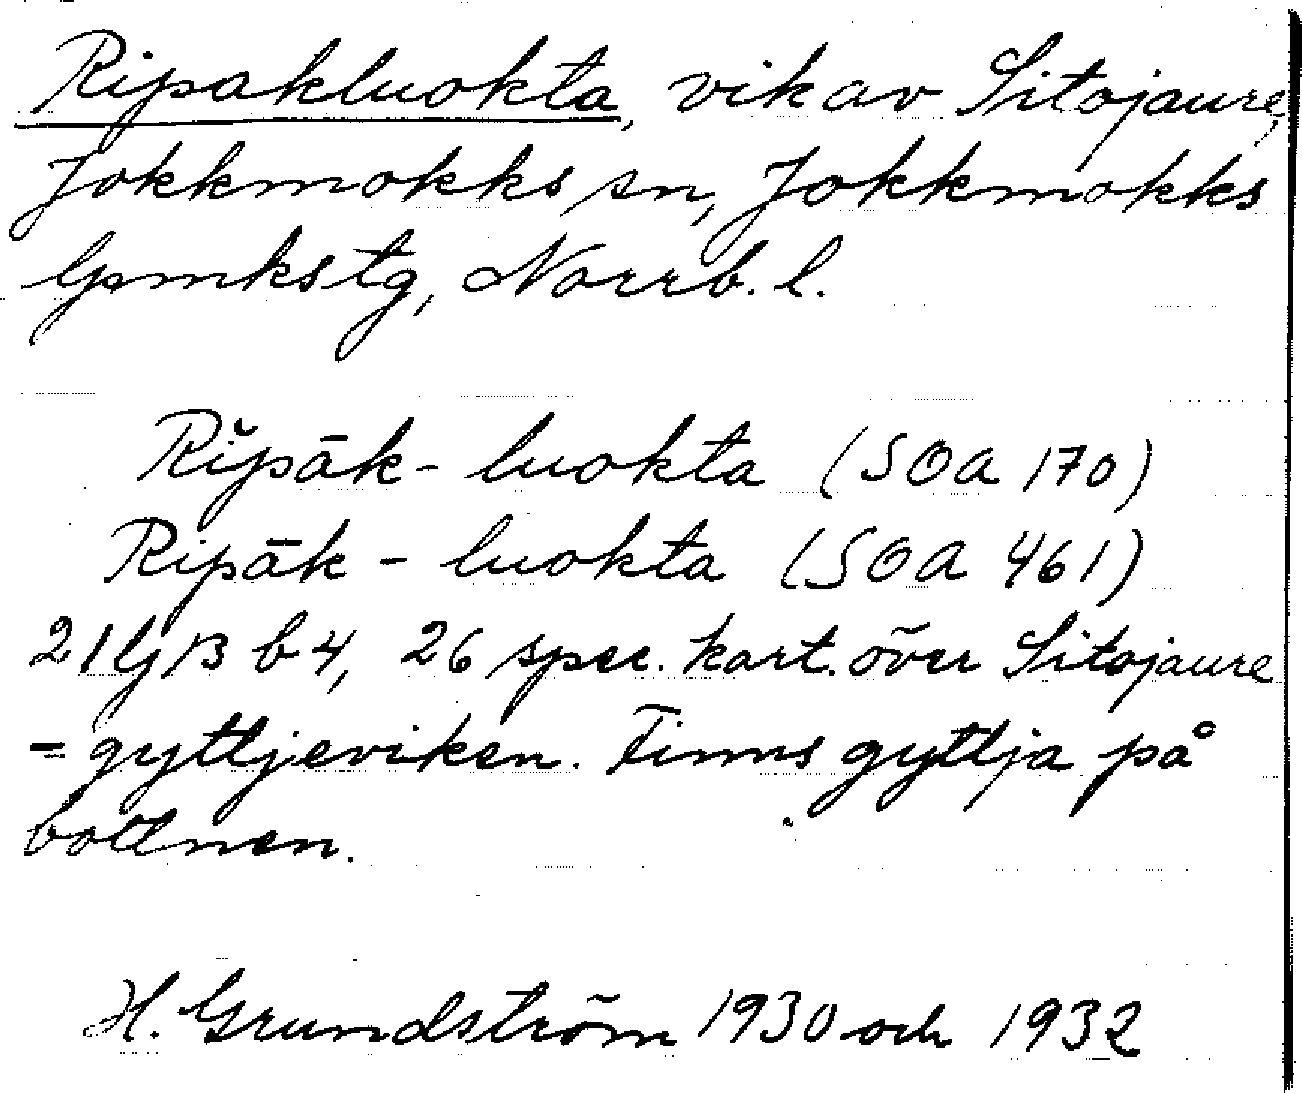 Ripakluokta, vik av Sitojaure,
Jokkmokks sn, Jokkmokks
lpmkstg, Norrb. l.
Rĭpāk - luokta (SOA 170)
Ripāk - luokta (SOA 461)
21 lj B b 4, 26 spec. kart. över Sitojaure
= gyttjeviken. Finns gyttja på
bottnen.
H. Grundström 1930 och 1932